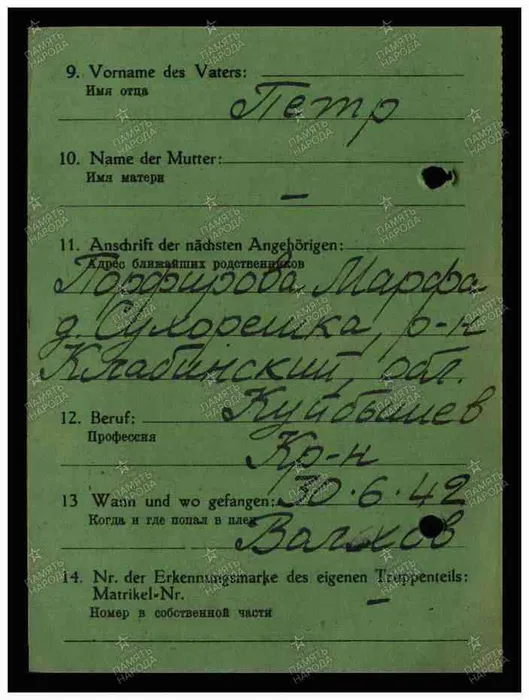 9. Vorname des Vaters:
Имя отца
Петр
10. Name der Mutter:
Имя матери
–
11. Anschrift der nächsten Angehörigen:
Адрес ближайших родственников
Порфирова Марфа
д. Сухорешка, р-н
Клабинский, обл.
Куйбышев
12. Beruf:
Профессия
Кр-н
13 Wann und wo gefangen: 30.6.42
Когда и где попал в плен
Волхов
14. Nr. der Erkennungsmarke des eigenen Truppenteils:
Matrikel-Nr.
–
Номер в собственной части
ПАМЯТЬ
НАРОДА